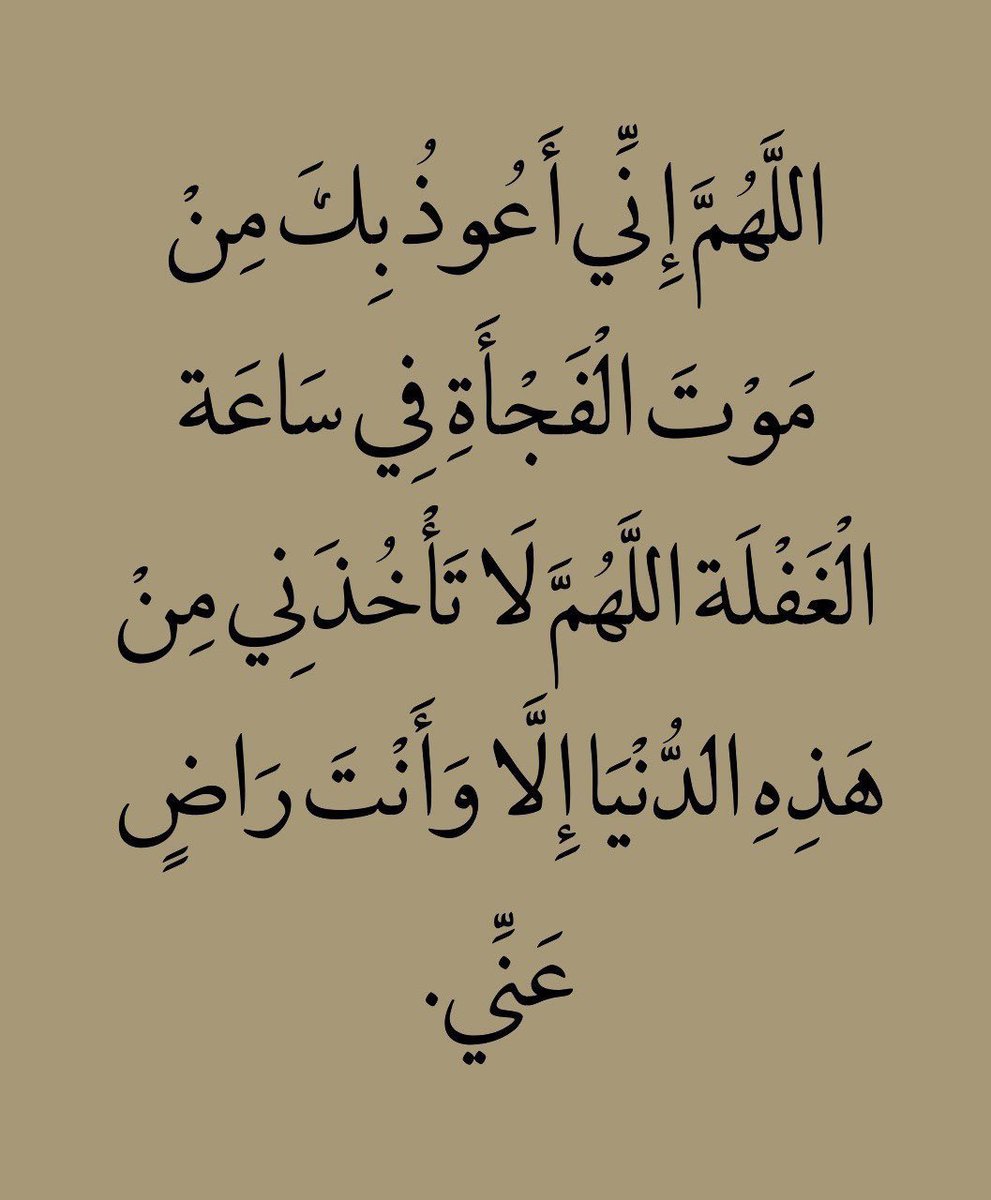 اللَّهُمَّ إِنِّي أَعُوذُ بِكَ مِنْ
مَوْتَ الْفَجْأَةِ فِي سَاعَة
الْغَفْلَة اللَّهُمَّ لَا تَأْخُذَنِي مِنْ
هَذِهِ الدُّنْيَا إِلَّا وَأَنْتَ رَاضٍ
عَنِّي.